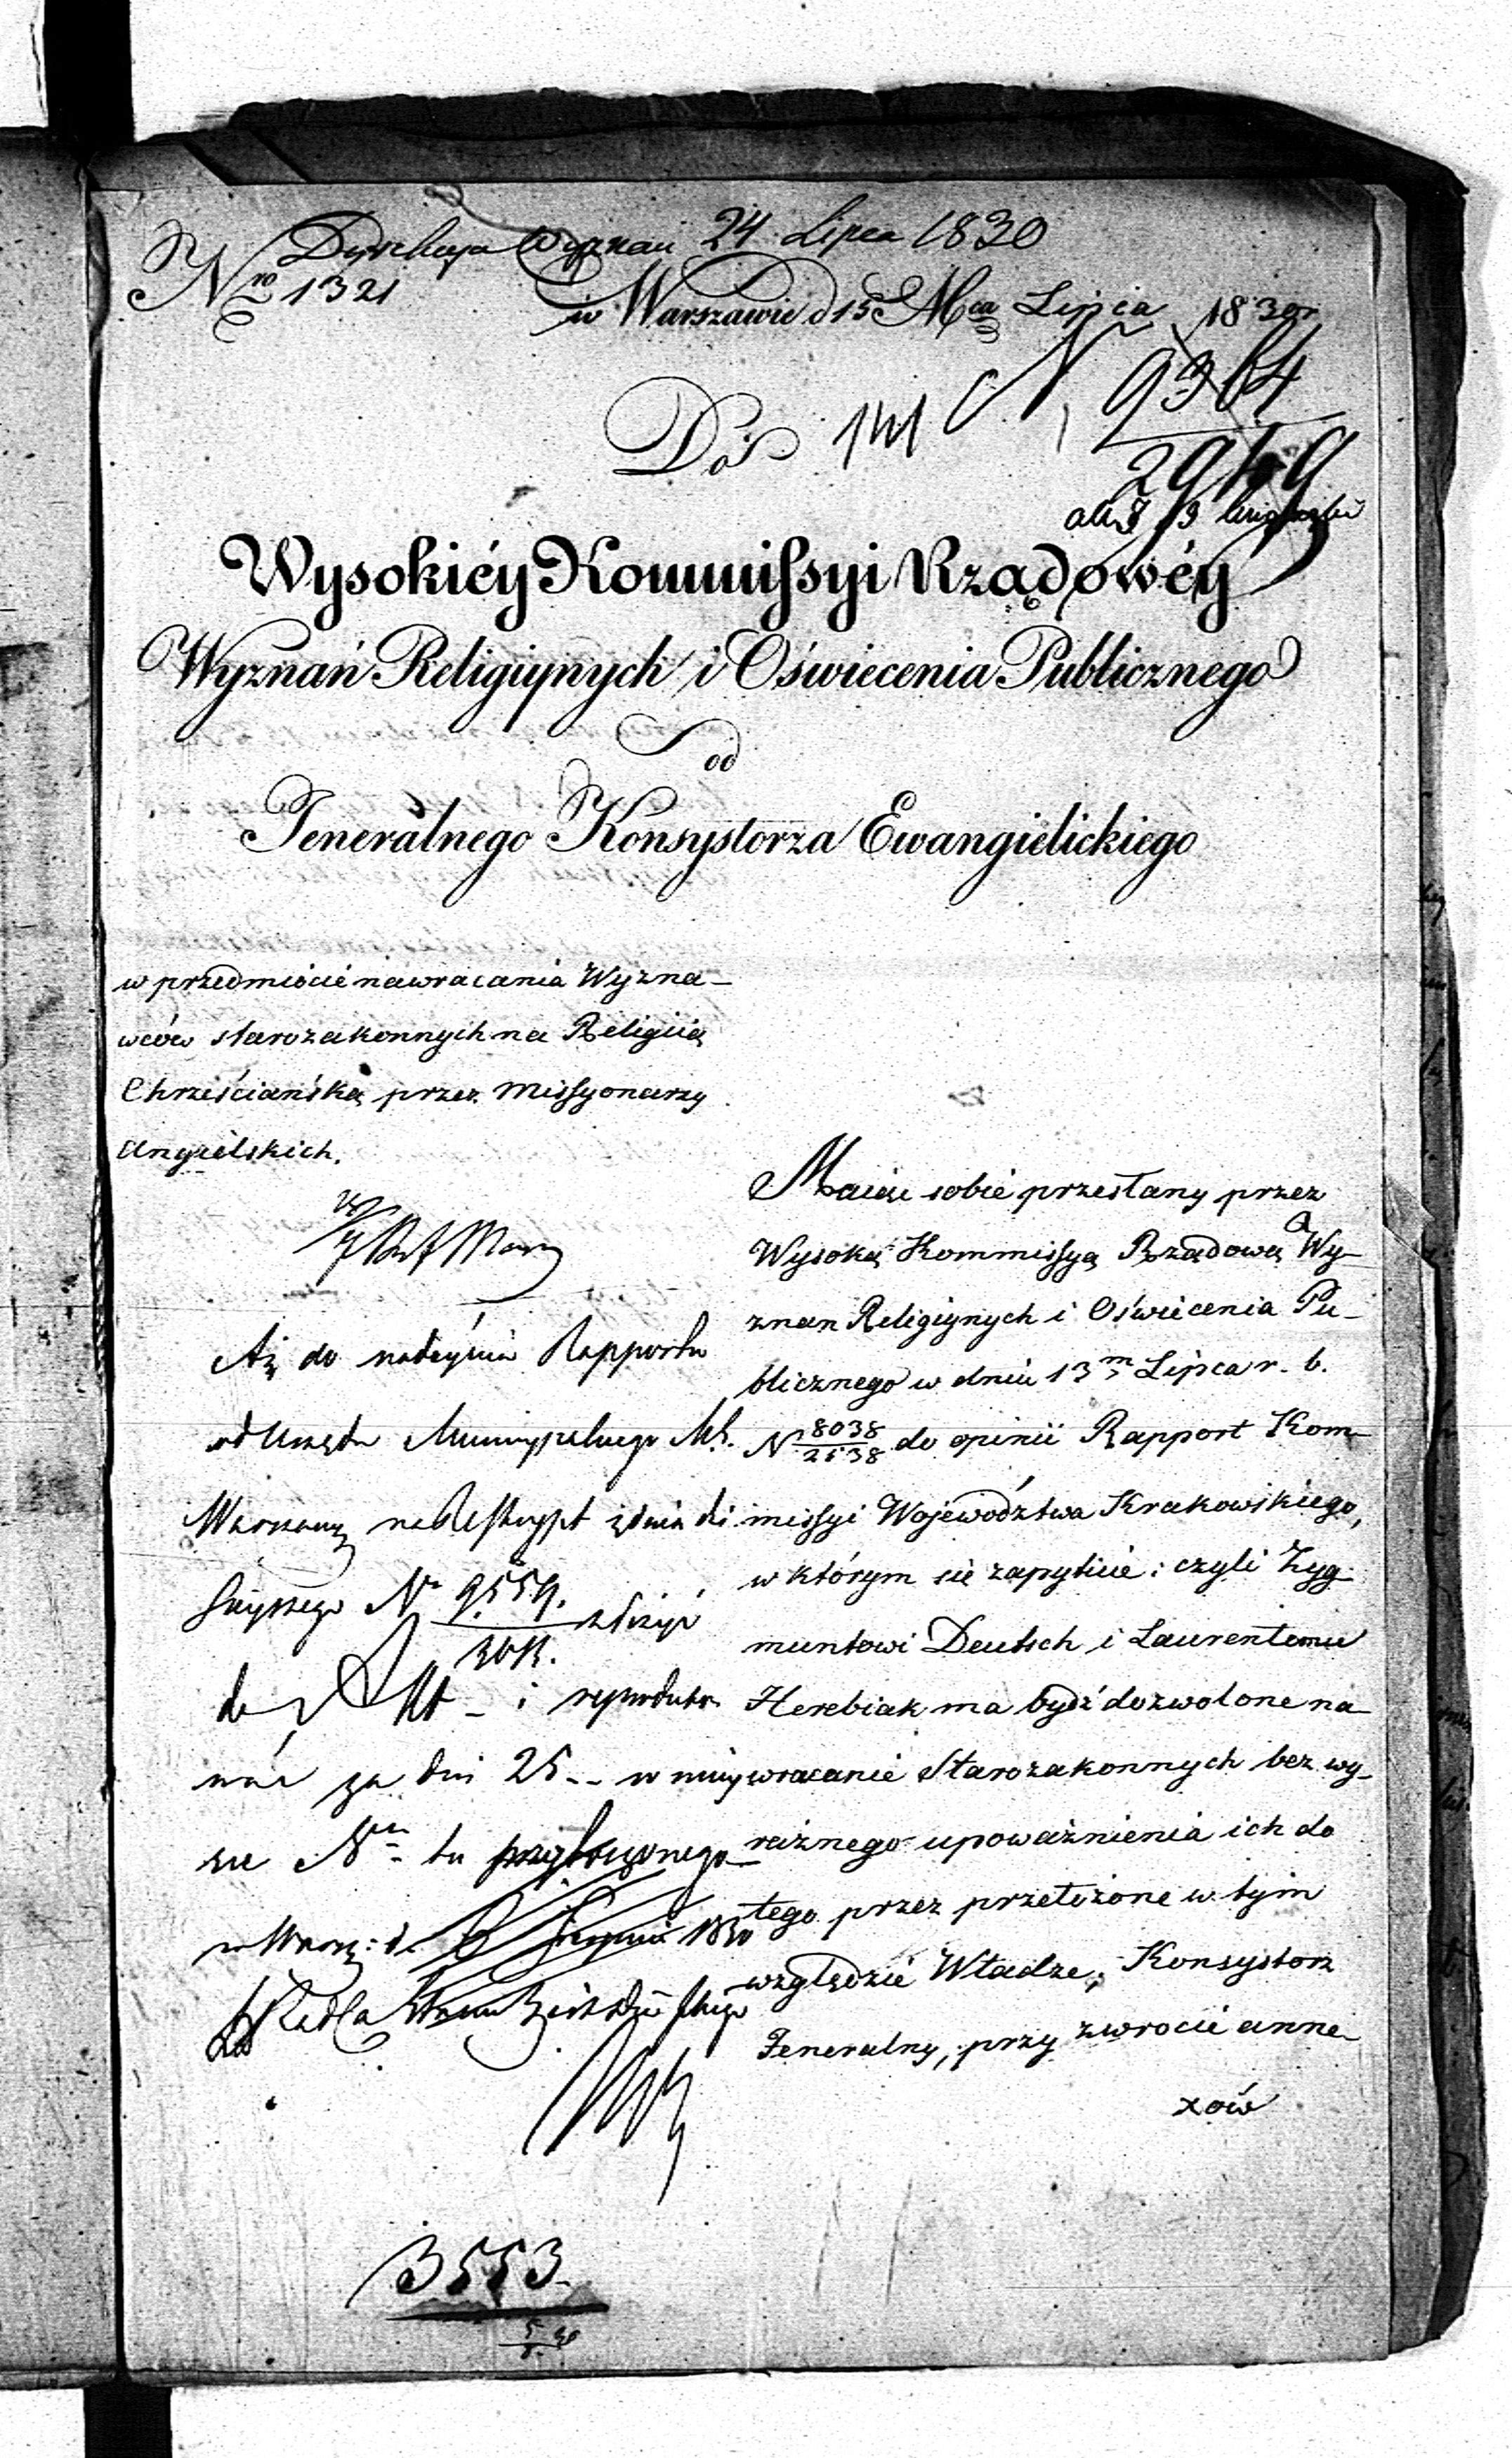 Dyrekcya Wyznań 24 Lipca 1830
Nro 1321
w Warszawie d 15 Mca Lipca 1830r
N 9364
2919
Do 141
Wysokiéy Kommissyi Rządowéy
Wyznań Religiynych i Oświecenia Publicznego
od
Jeneralnego Konsystorza Ewangielickiego
w przedmiocie nawracania Wyzna-
wców starozakonnych na Religiią
Chrześciańską przez Missyonarzy
Angielskich.
Aż do nadeyścia Rapportu
od Urzędu Municypalnego M.S.
Warszawy na Reskrypt z dnia dzi
sieyszego No 9559.
złożyć
do Akt i reproduko
wać za dni 25 -- w miey
sce Nru tu przyłączonego
w Warsz: d. 6 Sierpnia 1830
Maiąc sobie przesłany przez
Wysoką Kommissyą Rządową Wy-
znan Religiynych i Oświecenia Pu-
blicznego w dniu 13m Lipca r. b.
N 8038/2538 do opinii Rapport Kom-
missyi Województwa Krakowskiego,
w którym się zapytuie: czyli Zyg-
muntowi Deutsch i Laurentemu
Herebiak ma bydź dozwolone na-
wracanie Starozakonnych bez wy-
raźnego upoważnienia ich do
tego przez przełożone w tym
względzie Władze, Konsystorz
Jeneralny, przy zwrocie anne-
xów
3553